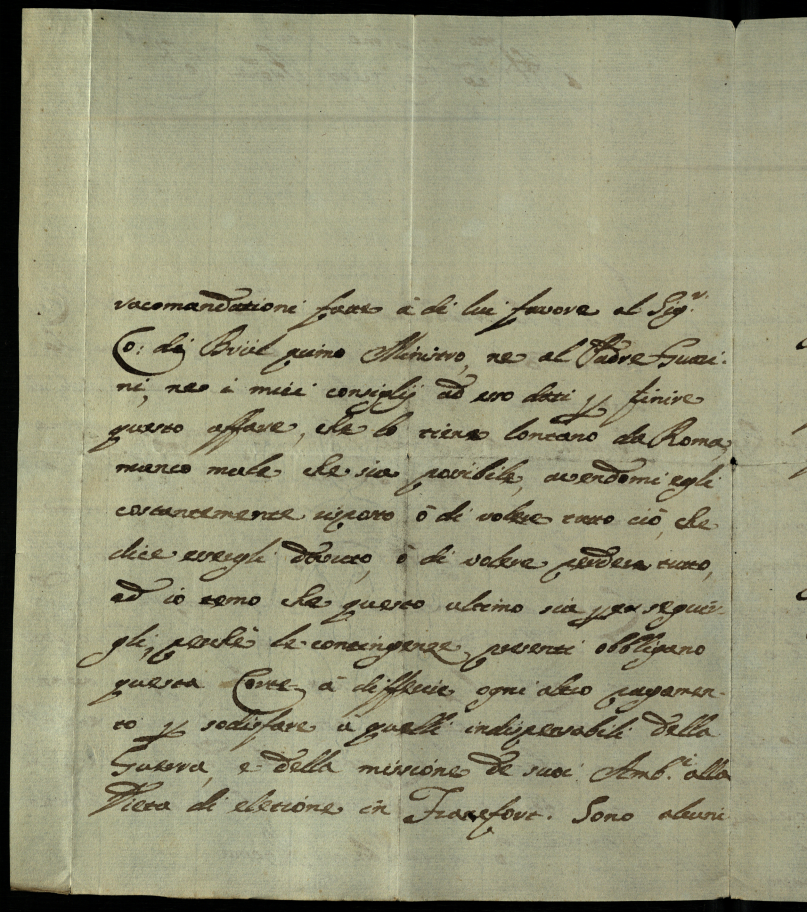 racomandationi fatte à di lui favore al Sig.r
Co: di Briil primo Ministro, ne al Padre Guari-
ni, ne i miei consiglij ad esso dati p finire
questo affare, che lo tiene lontano da Roma,
manco male che sia possibile, avendomi egli
costantemente risposto ò di volere tutto ciò, che
dice essergli dovuto, ò di volere perdere tutto,
ed io temo che questo ultimo sia per seguir-
gli, perchè le contingenze presenti obbligano
questa Corte à differir ogni altro pagamen-
to p sodisfare à quelli indispensabili della
Guerra, e della missione de suoi Amb.i alla
Dieta di eletione in Francfort. Sono alcuni